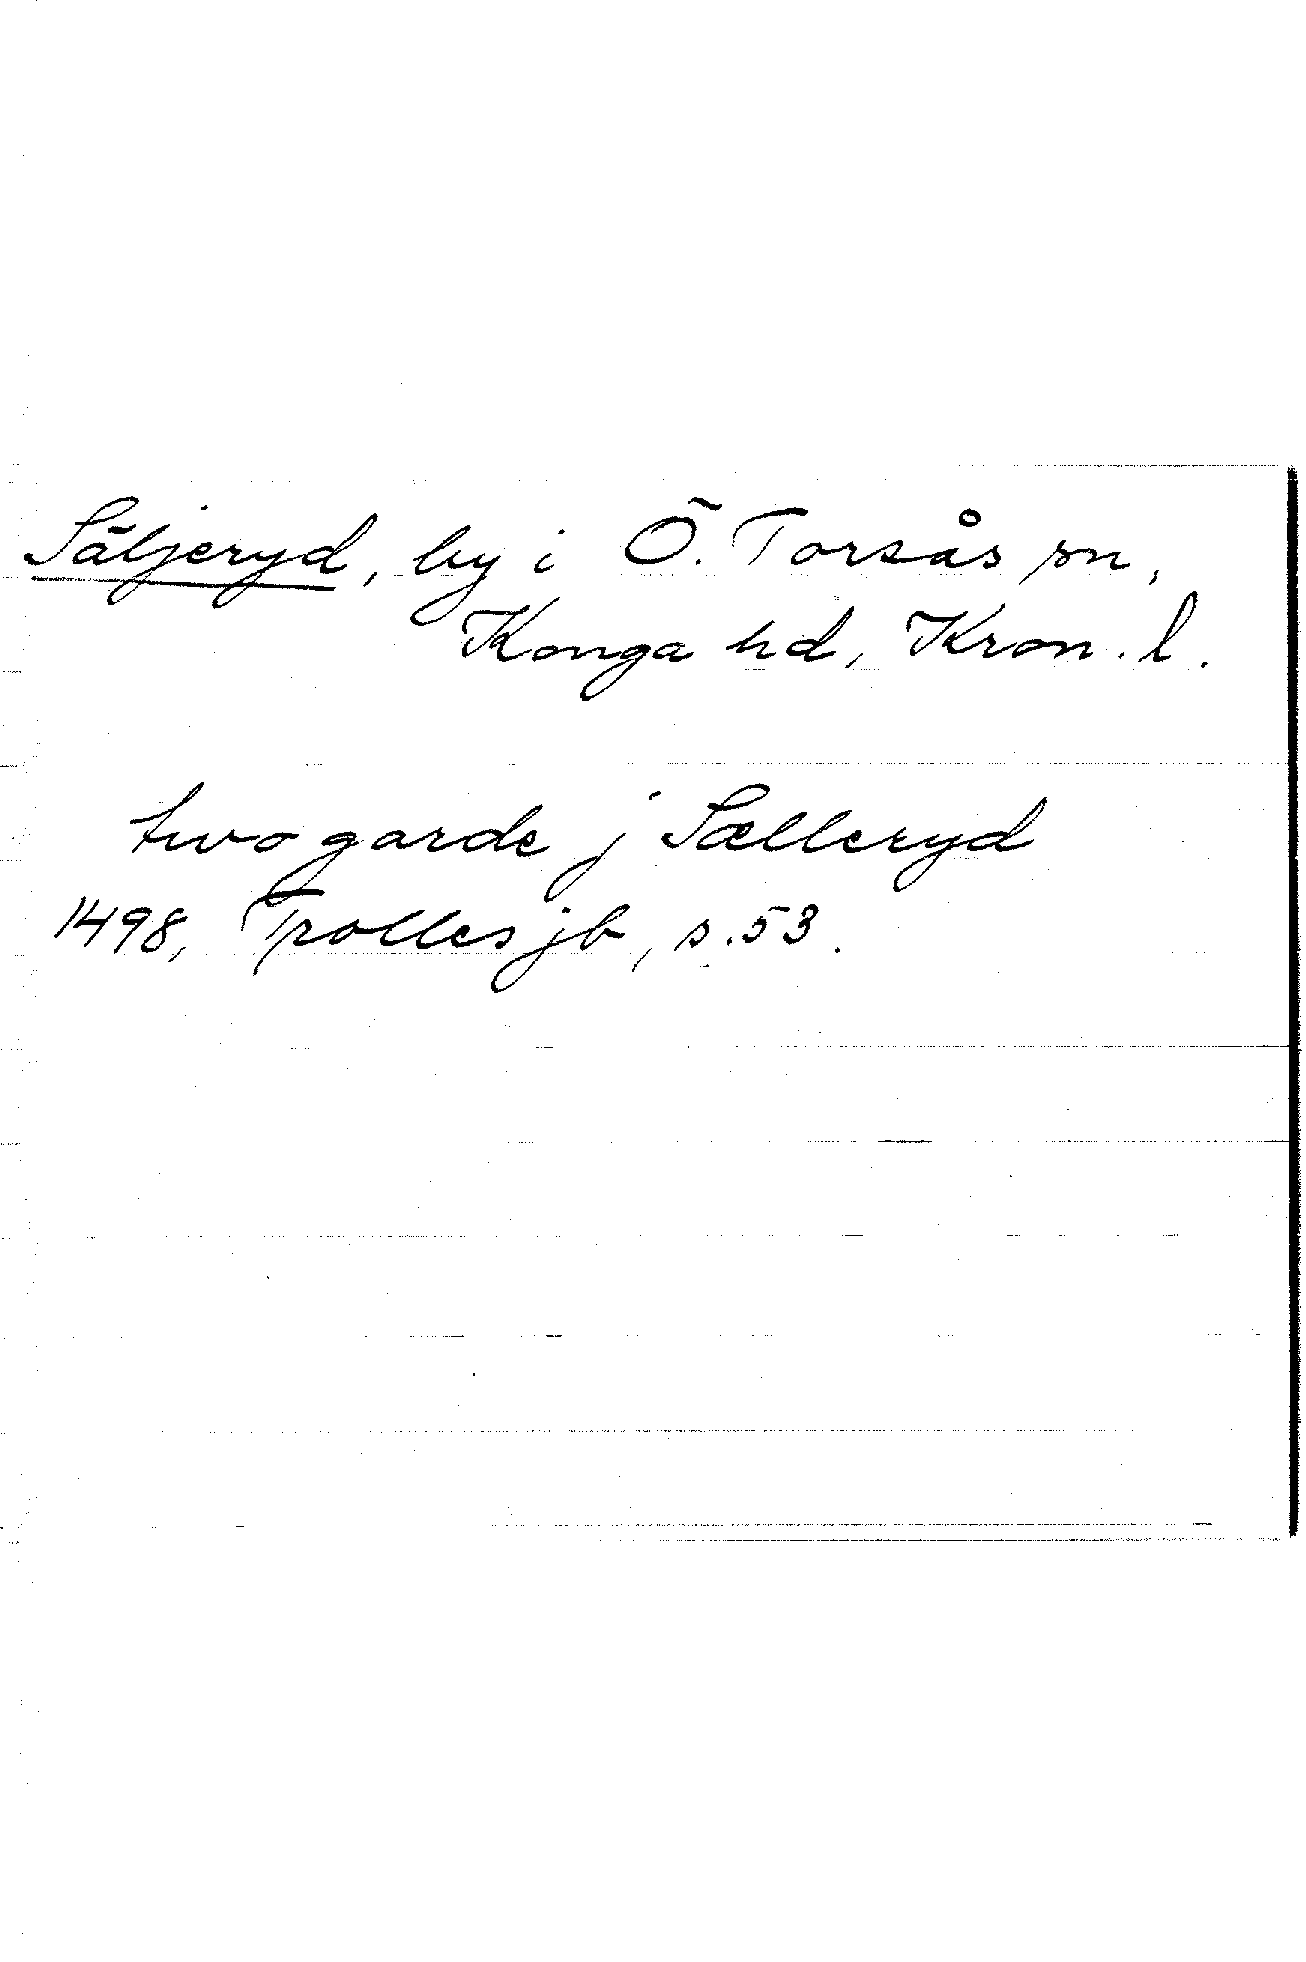 Säljeryd, by i Ö. Torsås sn,
Konga hd, Kron. l.
two garde j Sælleryd
1498, Trolles jb, s. 53.